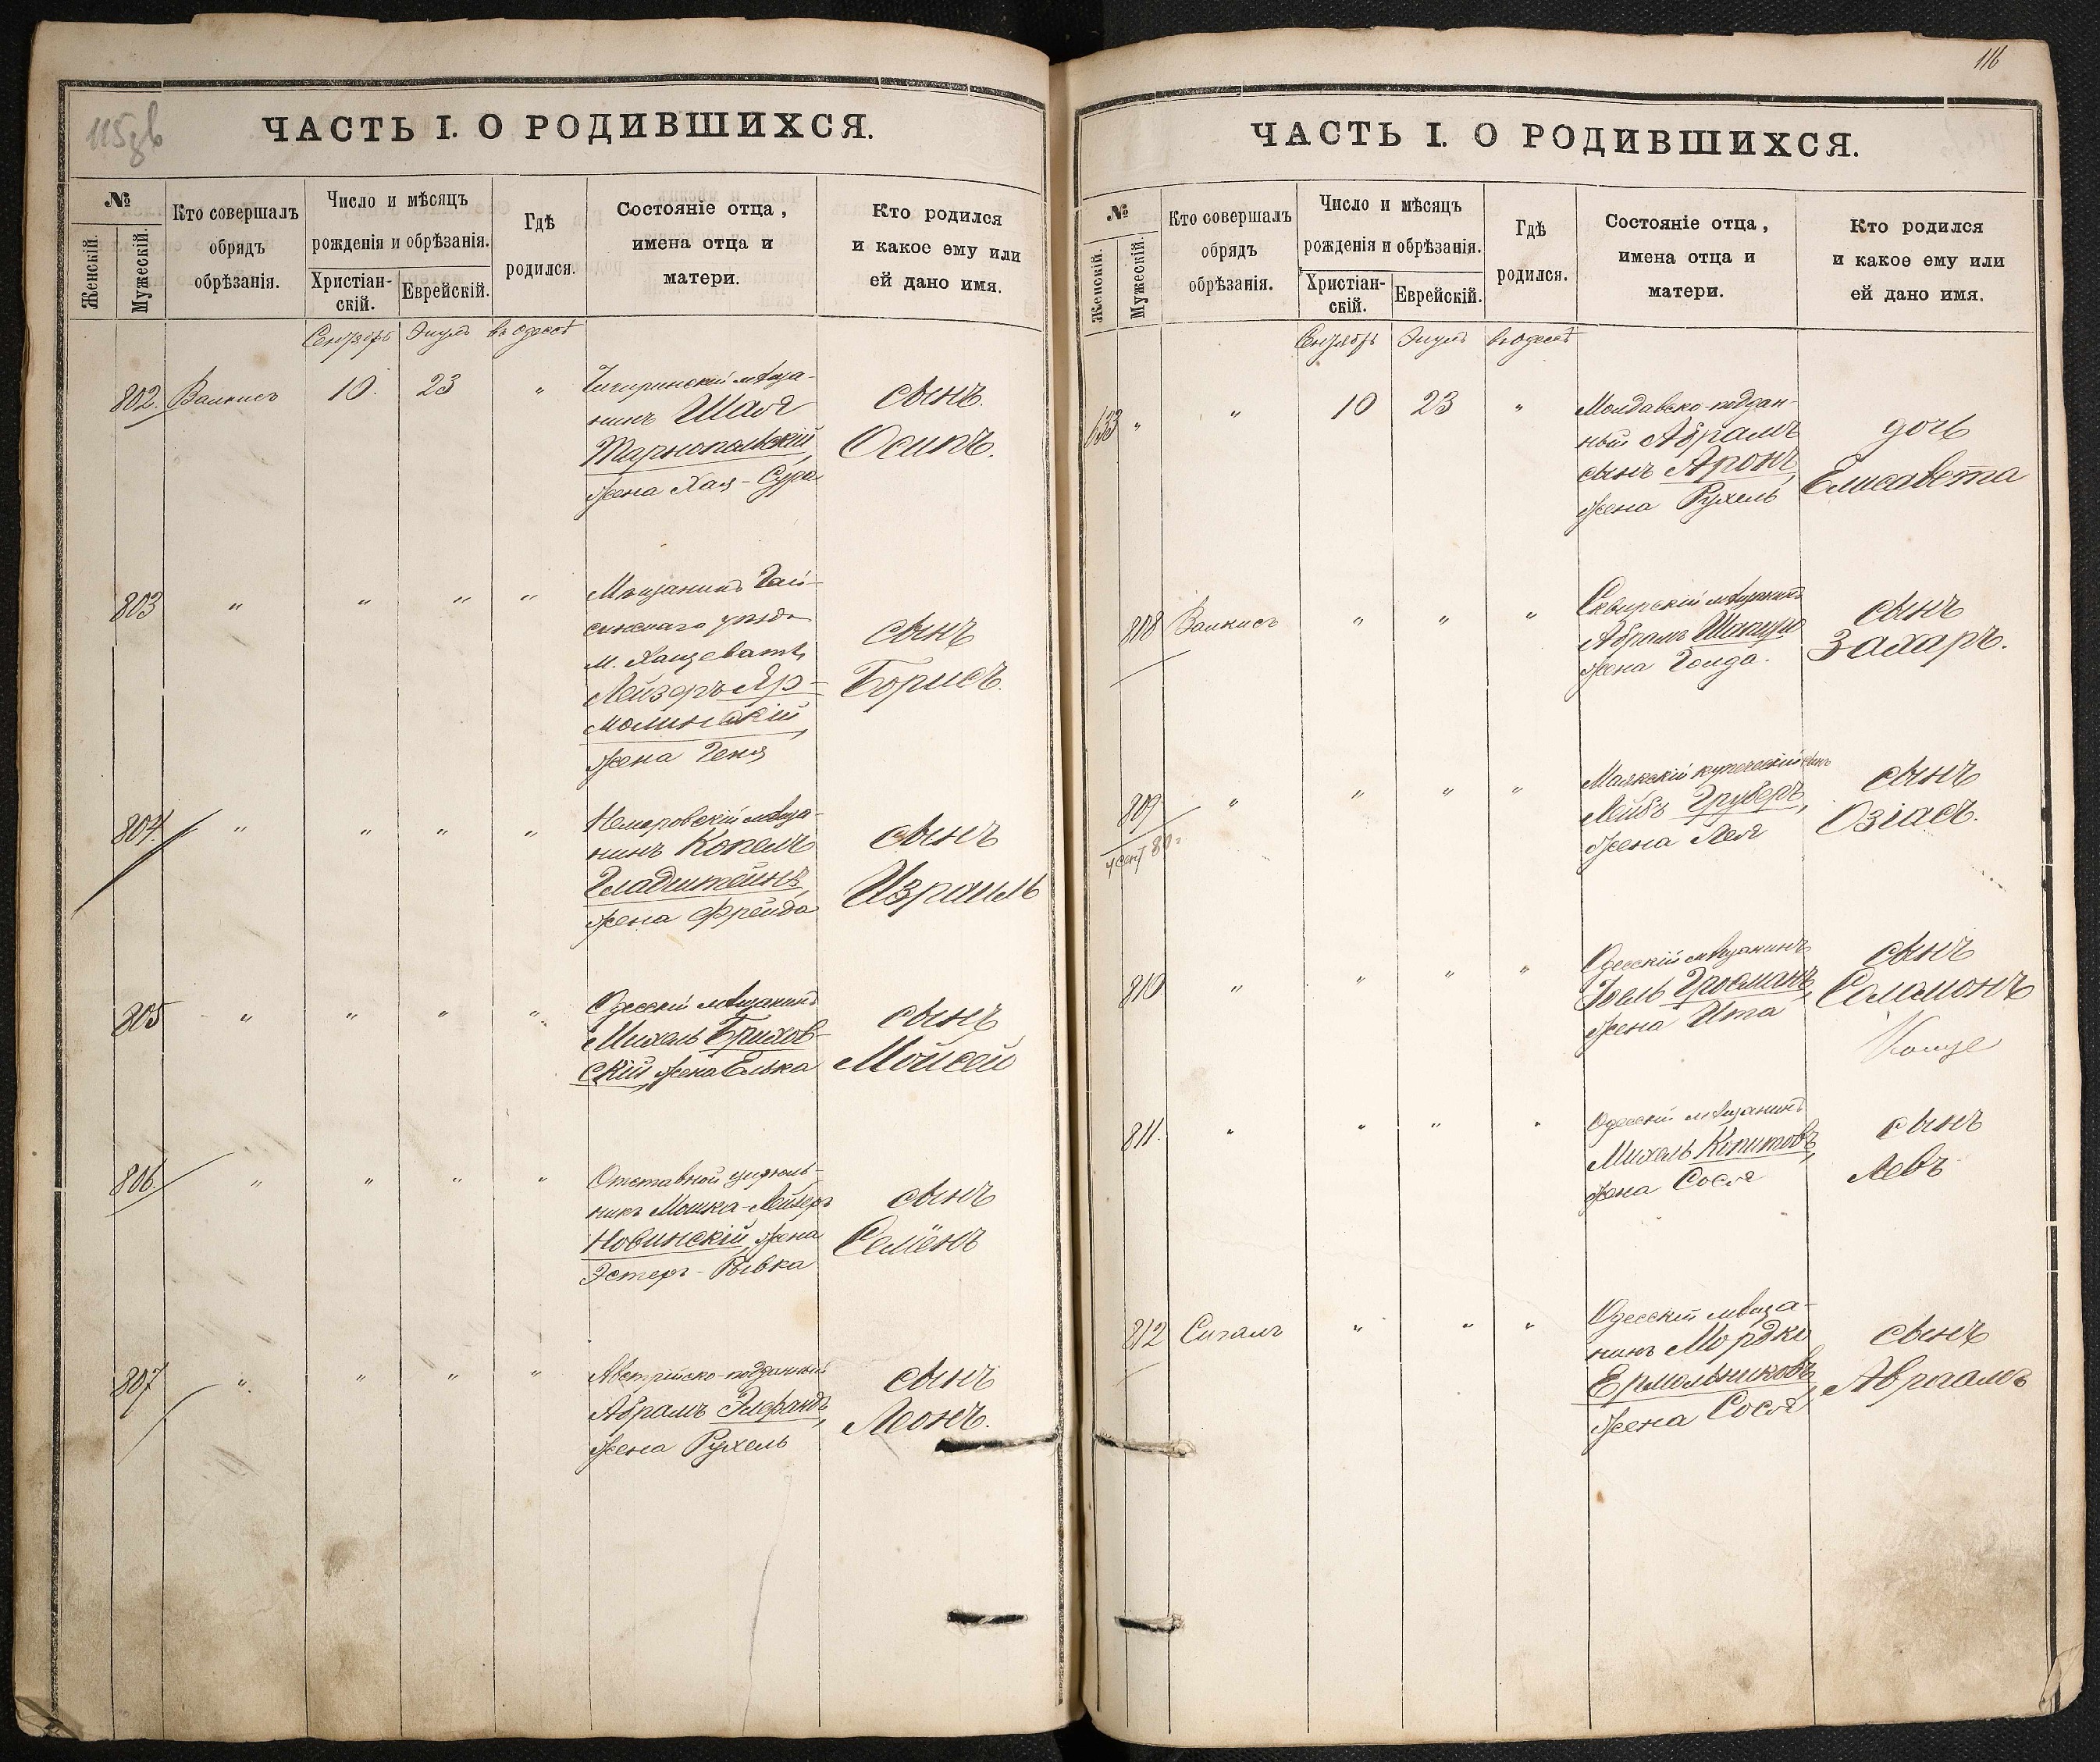 115зв
ЧАСТЬ I. О РОДИВШИХСЯ.
№
Женскій.
Мужескій.
Кто совершалъ
обрядъ
обрѣзанія.
Число и мѣсяцъ
рожденія и обрѣзанія.
Христіан-
скій.
Еврейскій.
Гдѣ
родился.
Состояніе отца,
имена отца и
матери.
Кто родился
и какое ему или
ей дано имя.
Сентябрь Элулъ въ Одессѣ
802. Валкисъ 10. 23 „
Чигиринскій мѣща-
нинъ Шая
Тарнопольскій,
жена Хая-Сура
сынъ.
Осипъ.
803 „ „ „ „
Мѣщанинъ Гай-
синскаго уѣзда
м. Хащевати,
Лейзеръ Яр-
молинскій,
жена Геня
сынъ
Борисъ.
804. „ „ „ „
Немировскій мѣща-
нинъ Копель
Гладштейнъ,
жена Фрейда
сынъ
Израиль
805 „ „ „ „
Одесскій мѣщанинъ
Михель Брихов-
скій, жена Элька
сынъ
Мойсей
806. „ „ „ „
Отставной цирюль-
никъ Мошка-Лейзеръ
Новинскій, жена
Эстеръ-Рывка
сынъ
Семёнъ
807 „ „ „ „
Австрійско-подданный
Абрамъ Элефандъ,
жена Рухель
сынъ
Леонъ.
116
ЧАСТЬ I. О РОДИВШИХСЯ.
№
Женскій.
Мужескій.
Кто совершалъ
обрядъ
обрѣзанія.
Число и мѣсяцъ
рожденія и обрѣзанія.
Христіан-
скій.
Еврейскій.
Гдѣ
родился.
Состояніе отца,
имена отца и
матери.
Кто родился
и какое ему или
ей дано имя.
Сентябрь Элулъ въ Одессѣ
633 „ „ 10 23 „
Молдавско-поддан-
ный Абрамъ
сынъ Аронъ,
жена Рухель
дочь
Елисавета
808 Валкисъ „ „ „
Сквирскій мѣщанинъ
Абрамъ Шапиро
жена Голда.
сынъ
Захаръ.
809 „ „ „ „
Маякскій купеческій сынъ
Лейбъ Груберъ,
жена Лея
сынъ
Озіасъ.
810 „ „ „ „
Одесскій мѣщанинъ
Іоель Гросманъ,
жена Ита
сынъ
Саламонъ
811. „ „ „ „
Одесскій мѣщанинъ
Михель Копитовъ,
жена Сося
сынъ
Левъ
812 Сигалъ „ „ „
Одесскій мѣща-
нинъ Мордко
Ермольниковъ,
жена Сося
сынъ
Авраамъ